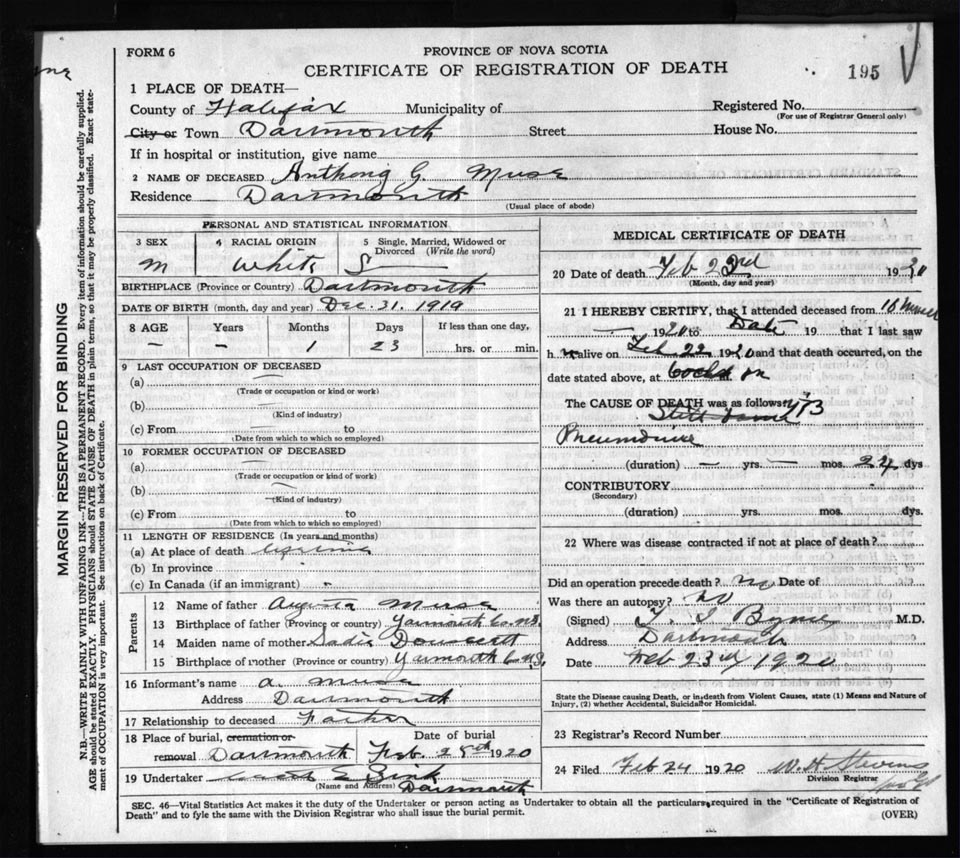 FORM 6
PROVINCE OF NOVA SCOTIA
CERTIFICATE OF REGISTRATION OF DEATH
195
1 PLACE OF DEATH—
County of Halifax Municipality of Registered No.
(For use of Registrar General only)
City or Town Dartmouth Street House No.
If in hospital or institution, give name
2 NAME OF DECEASED Anthony G. Muse
Residence Dartmouth
(Usual place of abode)
PERSONAL AND STATISTICAL INFORMATION
3 SEX 4 RACIAL ORIGIN 5 Single, Married, Widowed or Divorced (Write the word)
M White S
BIRTHPLACE (Province or Country) Dartmouth
DATE OF BIRTH (month, day and year) Dec. 31. 1919
8 AGE Years Months Days If less than one day,
— — 1 23 hrs. or min.
9 LAST OCCUPATION OF DECEASED
(a)
(Trade or occupation or kind or work)
(b)
(Kind of industry)
(c) From to
(Date from which to which so employed)
10 FORMER OCCUPATION OF DECEASED
(a)
(Trade or occupation or kind of work)
(b)
(Kind of industry)
(c) From to
(Date from which to which so employed)
11 LENGTH OF RESIDENCE (In years and months)
(a) At place of death
(b) In province
(c) In Canada (if an immigrant)
Parents
12 Name of father Muse
13 Birthplace of father (Province or country) Yarmouth Co. N.S.
14 Maiden name of mother Sadie
15 Birthplace of mother (Province or country) Yarmouth Co. N.S.
16 Informant's name A. Muse
Address Dartmouth
17 Relationship to deceased Father
18 Place of burial, cremation or removal Date of burial
Dartmouth Feb. 25th 1920
19 Undertaker
(Name and Address) Dartmouth
MEDICAL CERTIFICATE OF DEATH
20 Date of death Feb 23rd 1920
(Month, day and year)
21 I HEREBY CERTIFY, that I attended deceased from
— 1920 to Date 19 that I last saw
h alive on Feb. 22 1920 and that death occurred, on the
date stated above, at
The CAUSE OF DEATH was as follows:
Pneumonia
(duration) — yrs. — mos. 24 dys
CONTRIBUTORY
(Secondary)
(duration) yrs. mos. dys.
22 Where was disease contracted if not at place of death?
Did an operation precede death? no Date of
Was there an autopsy? no
(Signed) M.D.
Address Dartmouth
Date Feb 23rd 1920
State the Disease causing Death, or in death from Violent Causes, state (1) Means and Nature of
Injury, (2) whether Accidental, Suicidal or Homicidal.
23 Registrar's Record Number
24 Filed Feb 24 1920 W. H. Stevens
Division Registrar
SEC. 46—Vital Statistics Act makes it the duty of the Undertaker or person acting as Undertaker to obtain all the particulars required in the "Certificate of Registration of
Death" and to fyle the same with the Division Registrar who shall issue the burial permit.
(OVER)
MARGIN RESERVED FOR BINDING
N.B.—WRITE PLAINLY WITH UNFADING INK—THIS IS A PERMANENT RECORD. Every item of information should be carefully supplied.
AGE should be stated EXACTLY. PHYSICIANS should STATE CAUSE OF DEATH in plain terms, so that it may be properly classified. Exact state-
ment of OCCUPATION is very important. See instructions on back of Certificate.